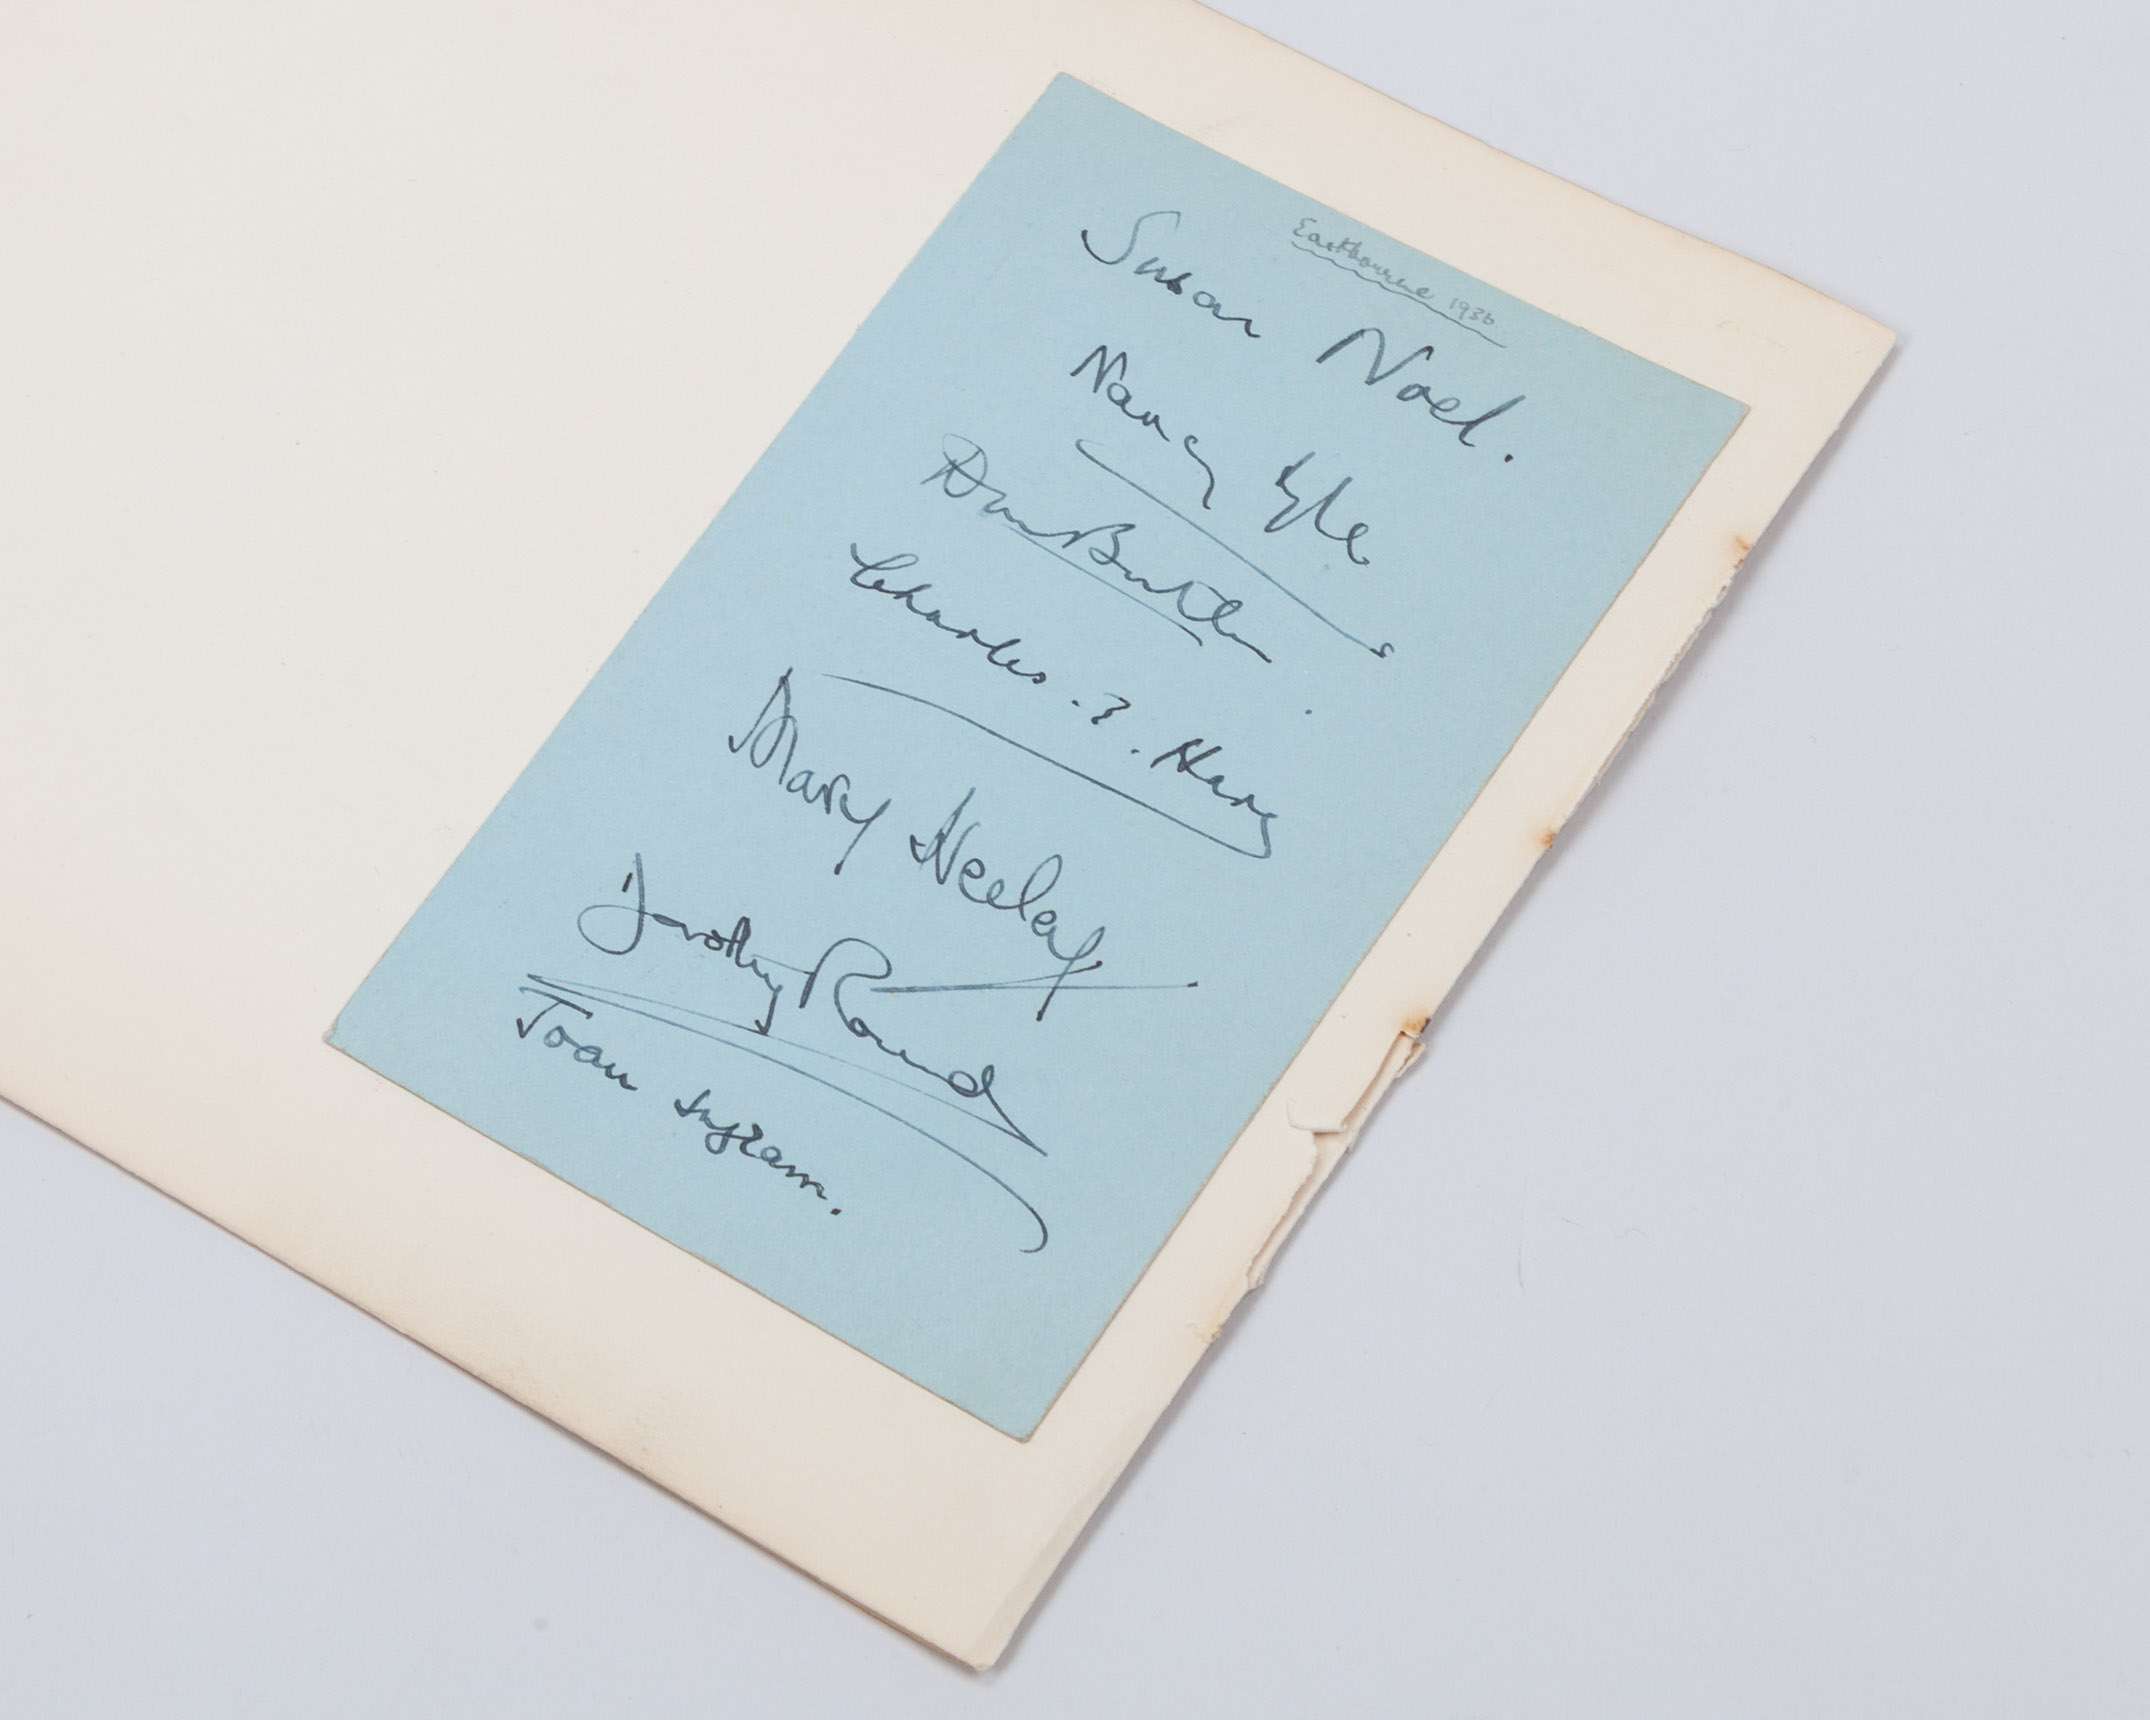 Eastbourne 1936
Susan Noel.
Nancy Lyle
Don Butler
Charles. . Hare
Mary Heeley
Dorothy Round
Joan Ingram.